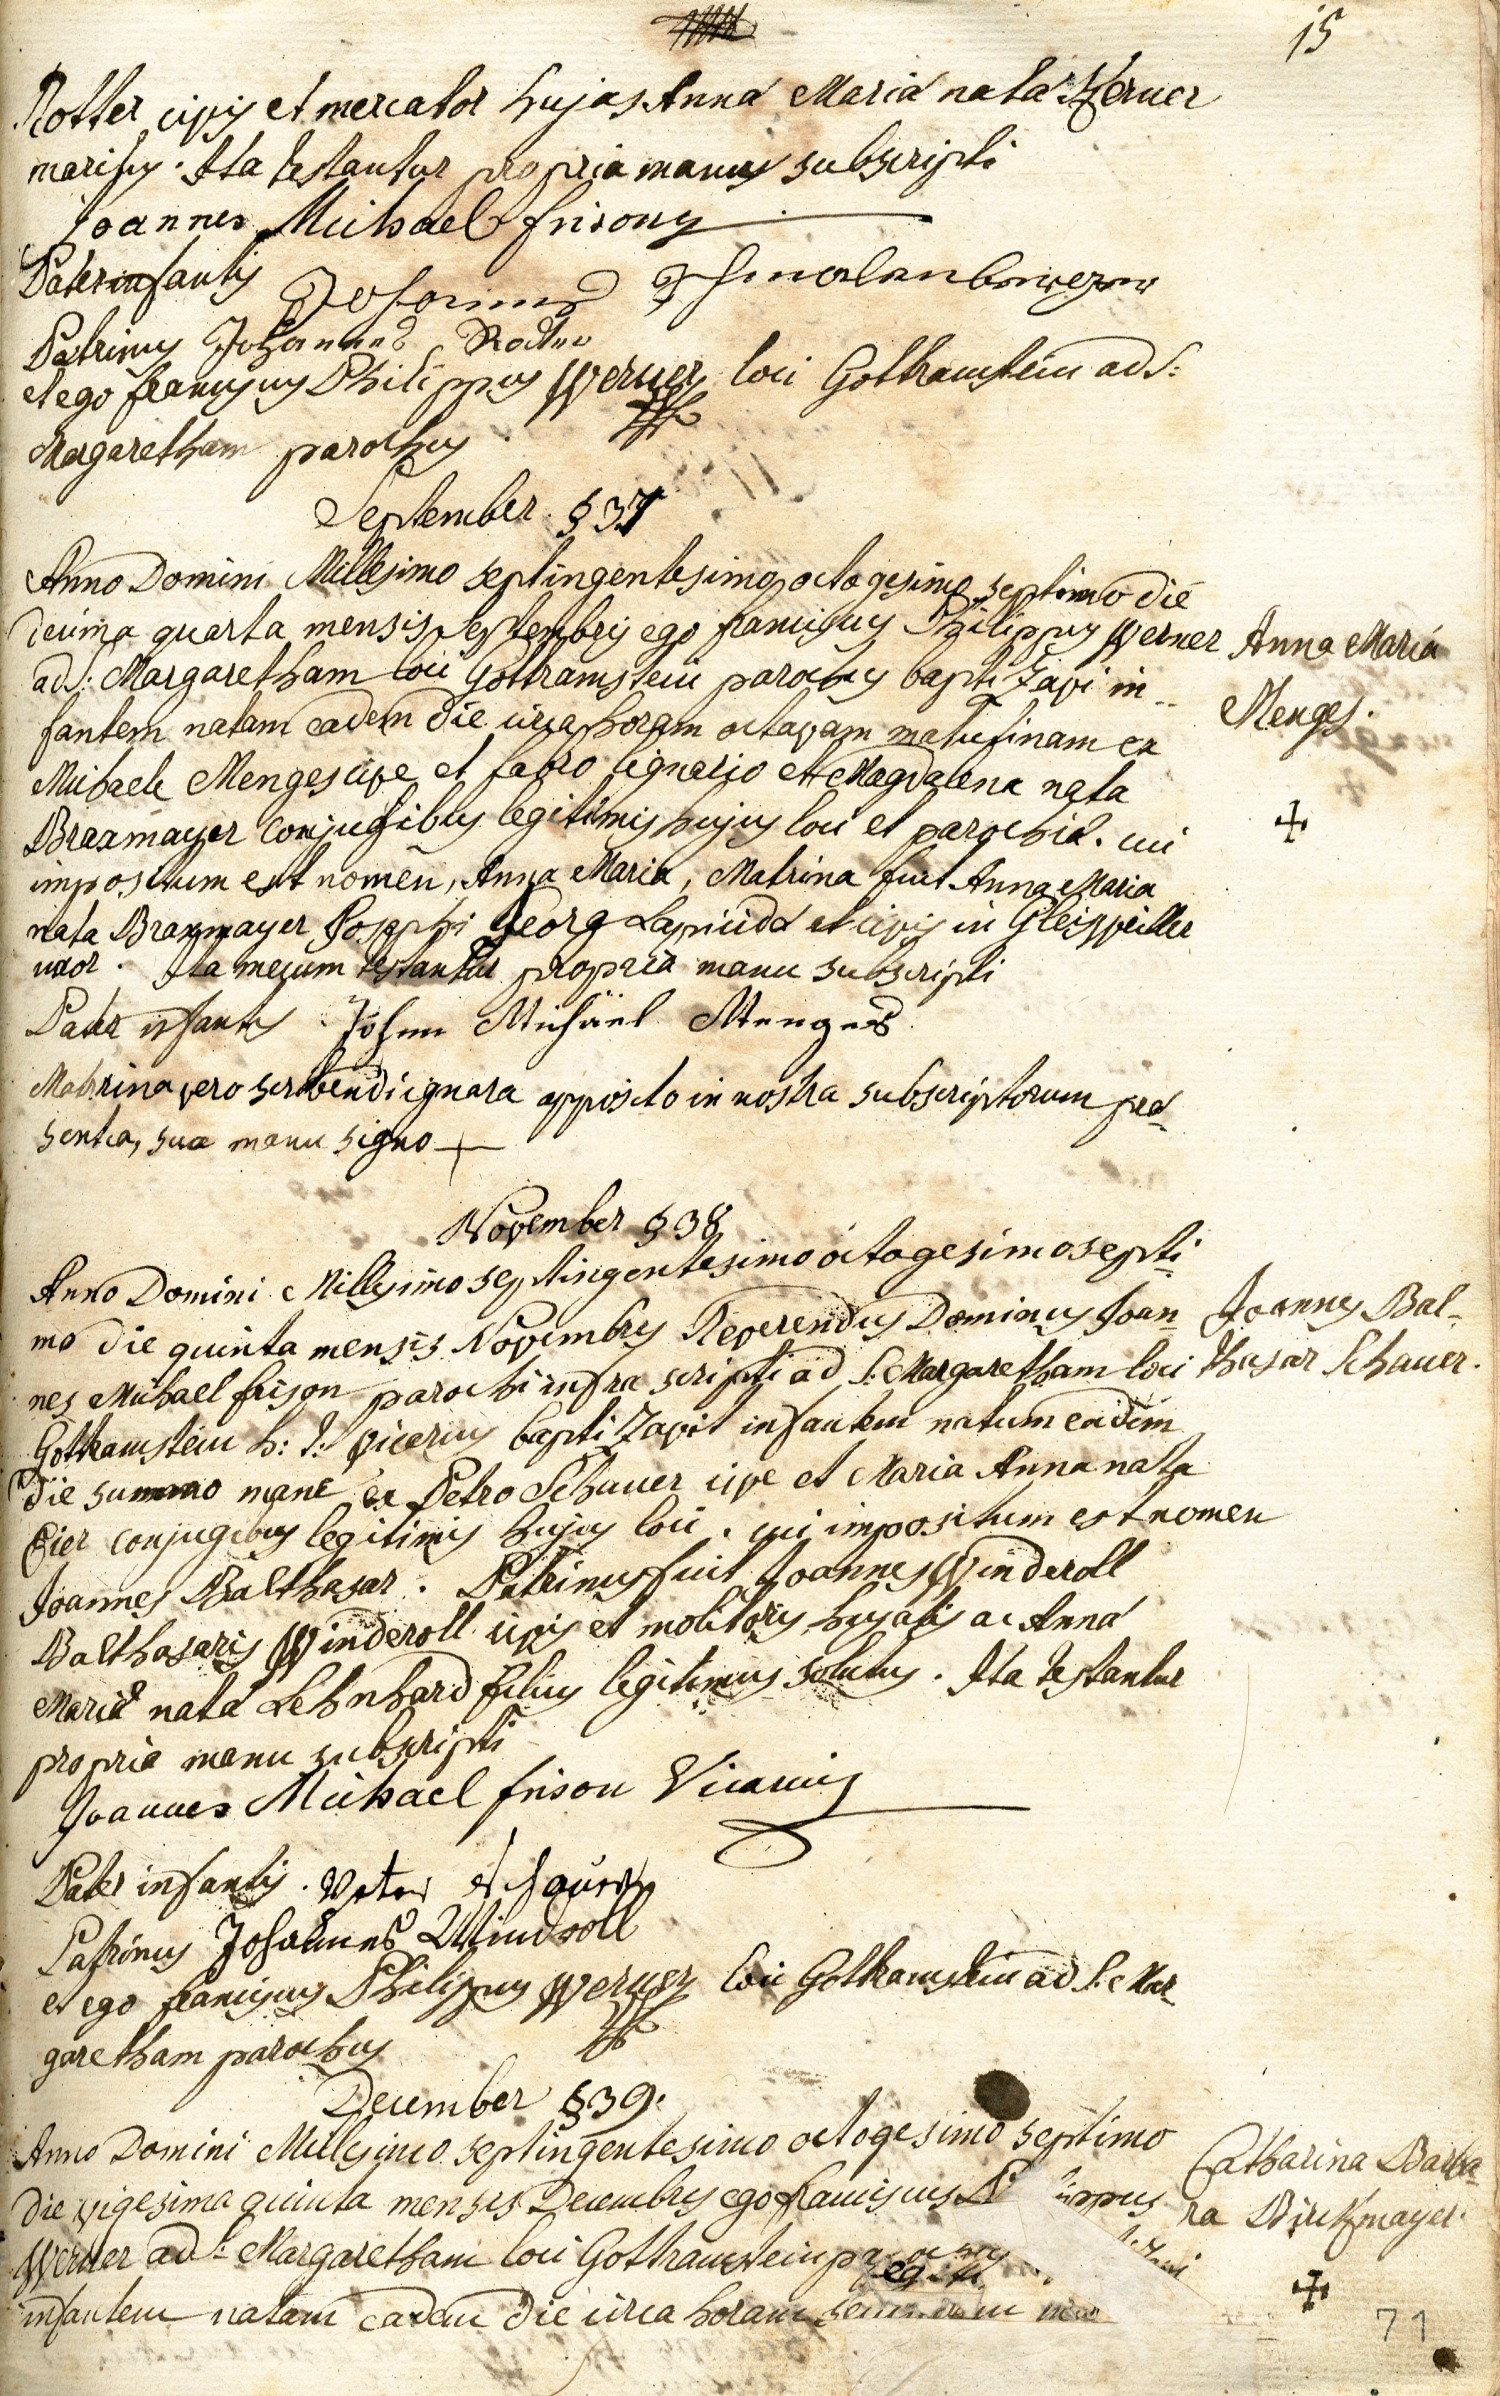 15
Rotter civis et mercator hujas Anna Maria nata Werner
maritus. Ita testantur propria manu subscripti
Joannes Michael frison
Pater infantis Johannes
Patrinus Johannes Rotter
et ego franciscus Philippus Werner loci Gottramstein ad S:
Margaretham parochus
September § 37
Anno Domini Millesimo septingentesimo octogesimo septimo die
decima quarta mensis Septembris ego franciscus Philippus Werner
ad S: Margaretham loci Gottramstein parochus baptizavi in-
fantem natam eadem die circa horam octavam matutinam ex
Michaele Menges cive et fabro lignario et Magdalena nata
Braxmayer conjugibus legitimis hujus loci et parochiae. cui
impositum est nomen, Anna Maria, Matrina fuit Anna Maria
nata Braxmayer Josephi Georg Lapicida et civis in Gleisweiller
uxor. Ita mecum testantur propria manu subscripti
Pater infantis Johan Michael Menges
Matrina vero scribendi ignara apposito in nostra subscriptorum prae-
sentia, sua manu signo +
Anna Maria
Menges.
November § 38
Anno Domini Millesimo septingentesimo octogesimo septi-
mo die quinta mensis Novembris Reverendus Dominus Joan
nes Michael frison parochi infra scripti ad S: Margaretham loci
Gottramstein h: t: vicarius baptizavit infantem natum eadem
die summo mane ex Petro Schauer cive et Maria Anna nata
Eier conjugibus legitimis hujus loci. cui impositum est nomen
Joannes Balthasar. Patrinus fuit Joannes Winderoll
Balthasaris Winderoll civis et molitoris hujatis ac Anna
Maria nata Lehnhard filius legitimus solutus. Ita testantur
propria manu subscripti
Joannes Michael frison Vicarius
Pater infantis. Peter Schauer
Patrinus Johannes Windroll
et ego franciscus Philippus Werner loci Gottramstein ad S: Mar-
garetham parochus
Joannes Bal-
thasar Schauer.
December § 39.
Anno Domini Millesimo septingentesimo octogesimo septimo
die vigesima quinta mensis Decembris ego franciscus
Werner ad S: Margaretham loci Gottramstein
infantem natam eadem die circa horam
Catharina Barba-
ra Birckmayer.
71